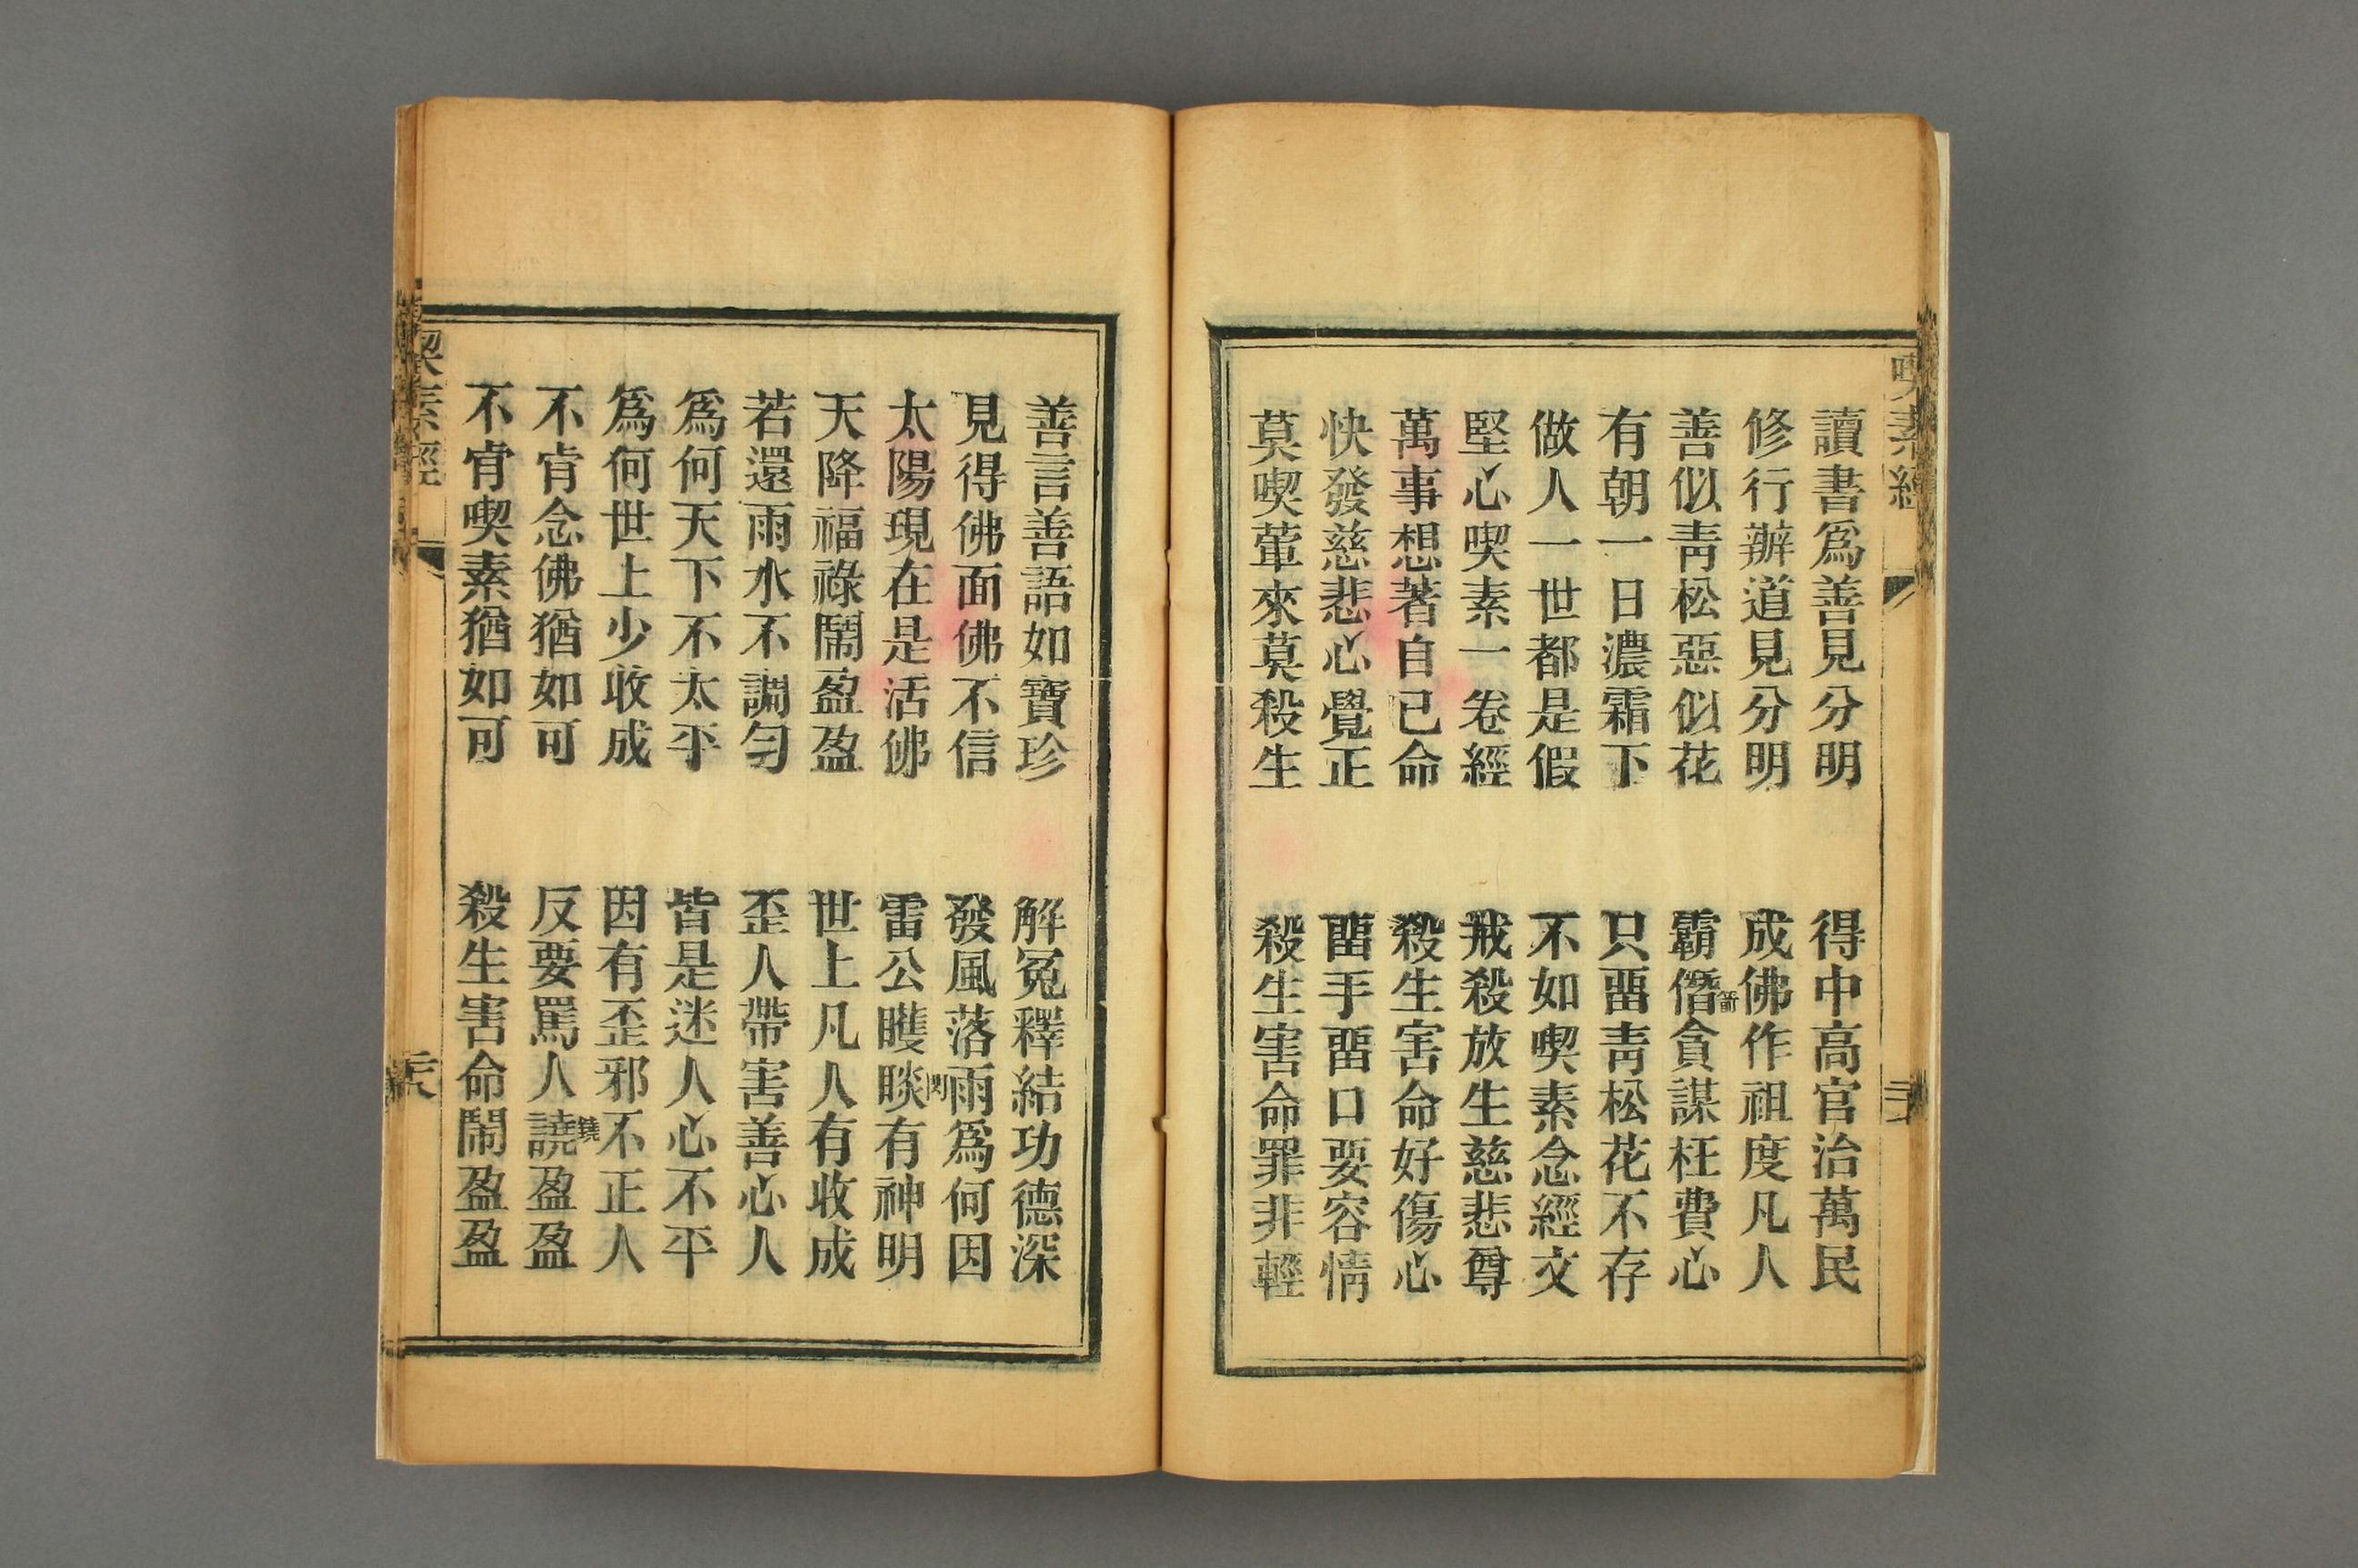 喫素經
讀書爲善見分明　得中高官治萬民
修行辦道見分明　成佛作祖度凡人
善似靑松惡似花　霸僭箭貪謀枉費心
有朝一日濃霜下　只畱靑松花不存
做人一世都是假　不如喫素念經文
堅心喫素一卷經　戒殺放生慈悲尊
萬事想著自己命　殺生害命好傷心
快發慈悲心覺正　畱手畱口要容情
莫喫葷來莫殺生　殺生害命罪非輕
善言善語如寶珍　解冤釋結功德深
見得佛面佛不信　發風落雨爲何因
太陽現在是活佛　雷公矆睒閃有神明
天降福祿鬧盈盈　世上凡人有收成
若還雨水不調勻　歪人帶害善心人
爲何天下不太平　皆是迷人心不平
爲何世上少收成　因有歪邪不正人
不肯念佛猶如可　反要罵人譊鐃盈盈
不肯喫素猶如可　殺生害命鬧盈盈
喫素經
二十八